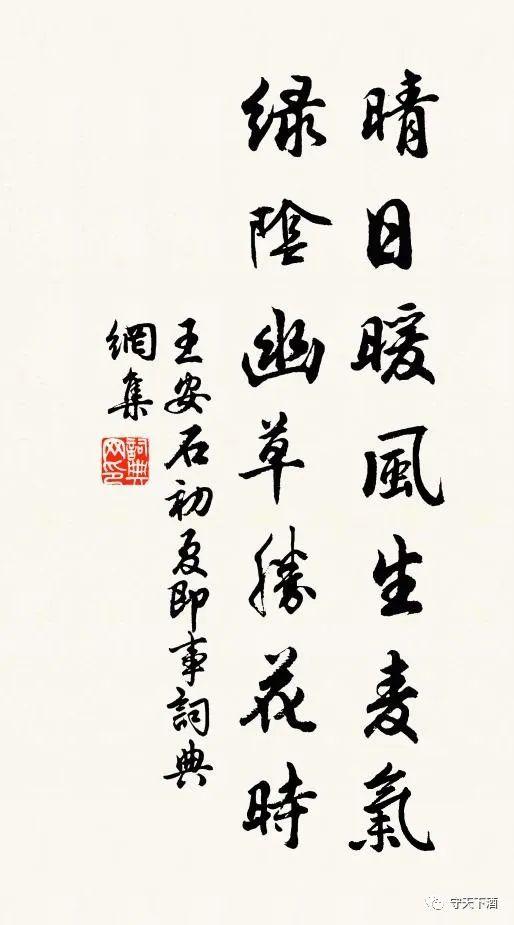 晴日暖風生麦氣
緑陰幽草勝花時
王安石初夏即事詞典
網集
詞典
网印
守天下酒